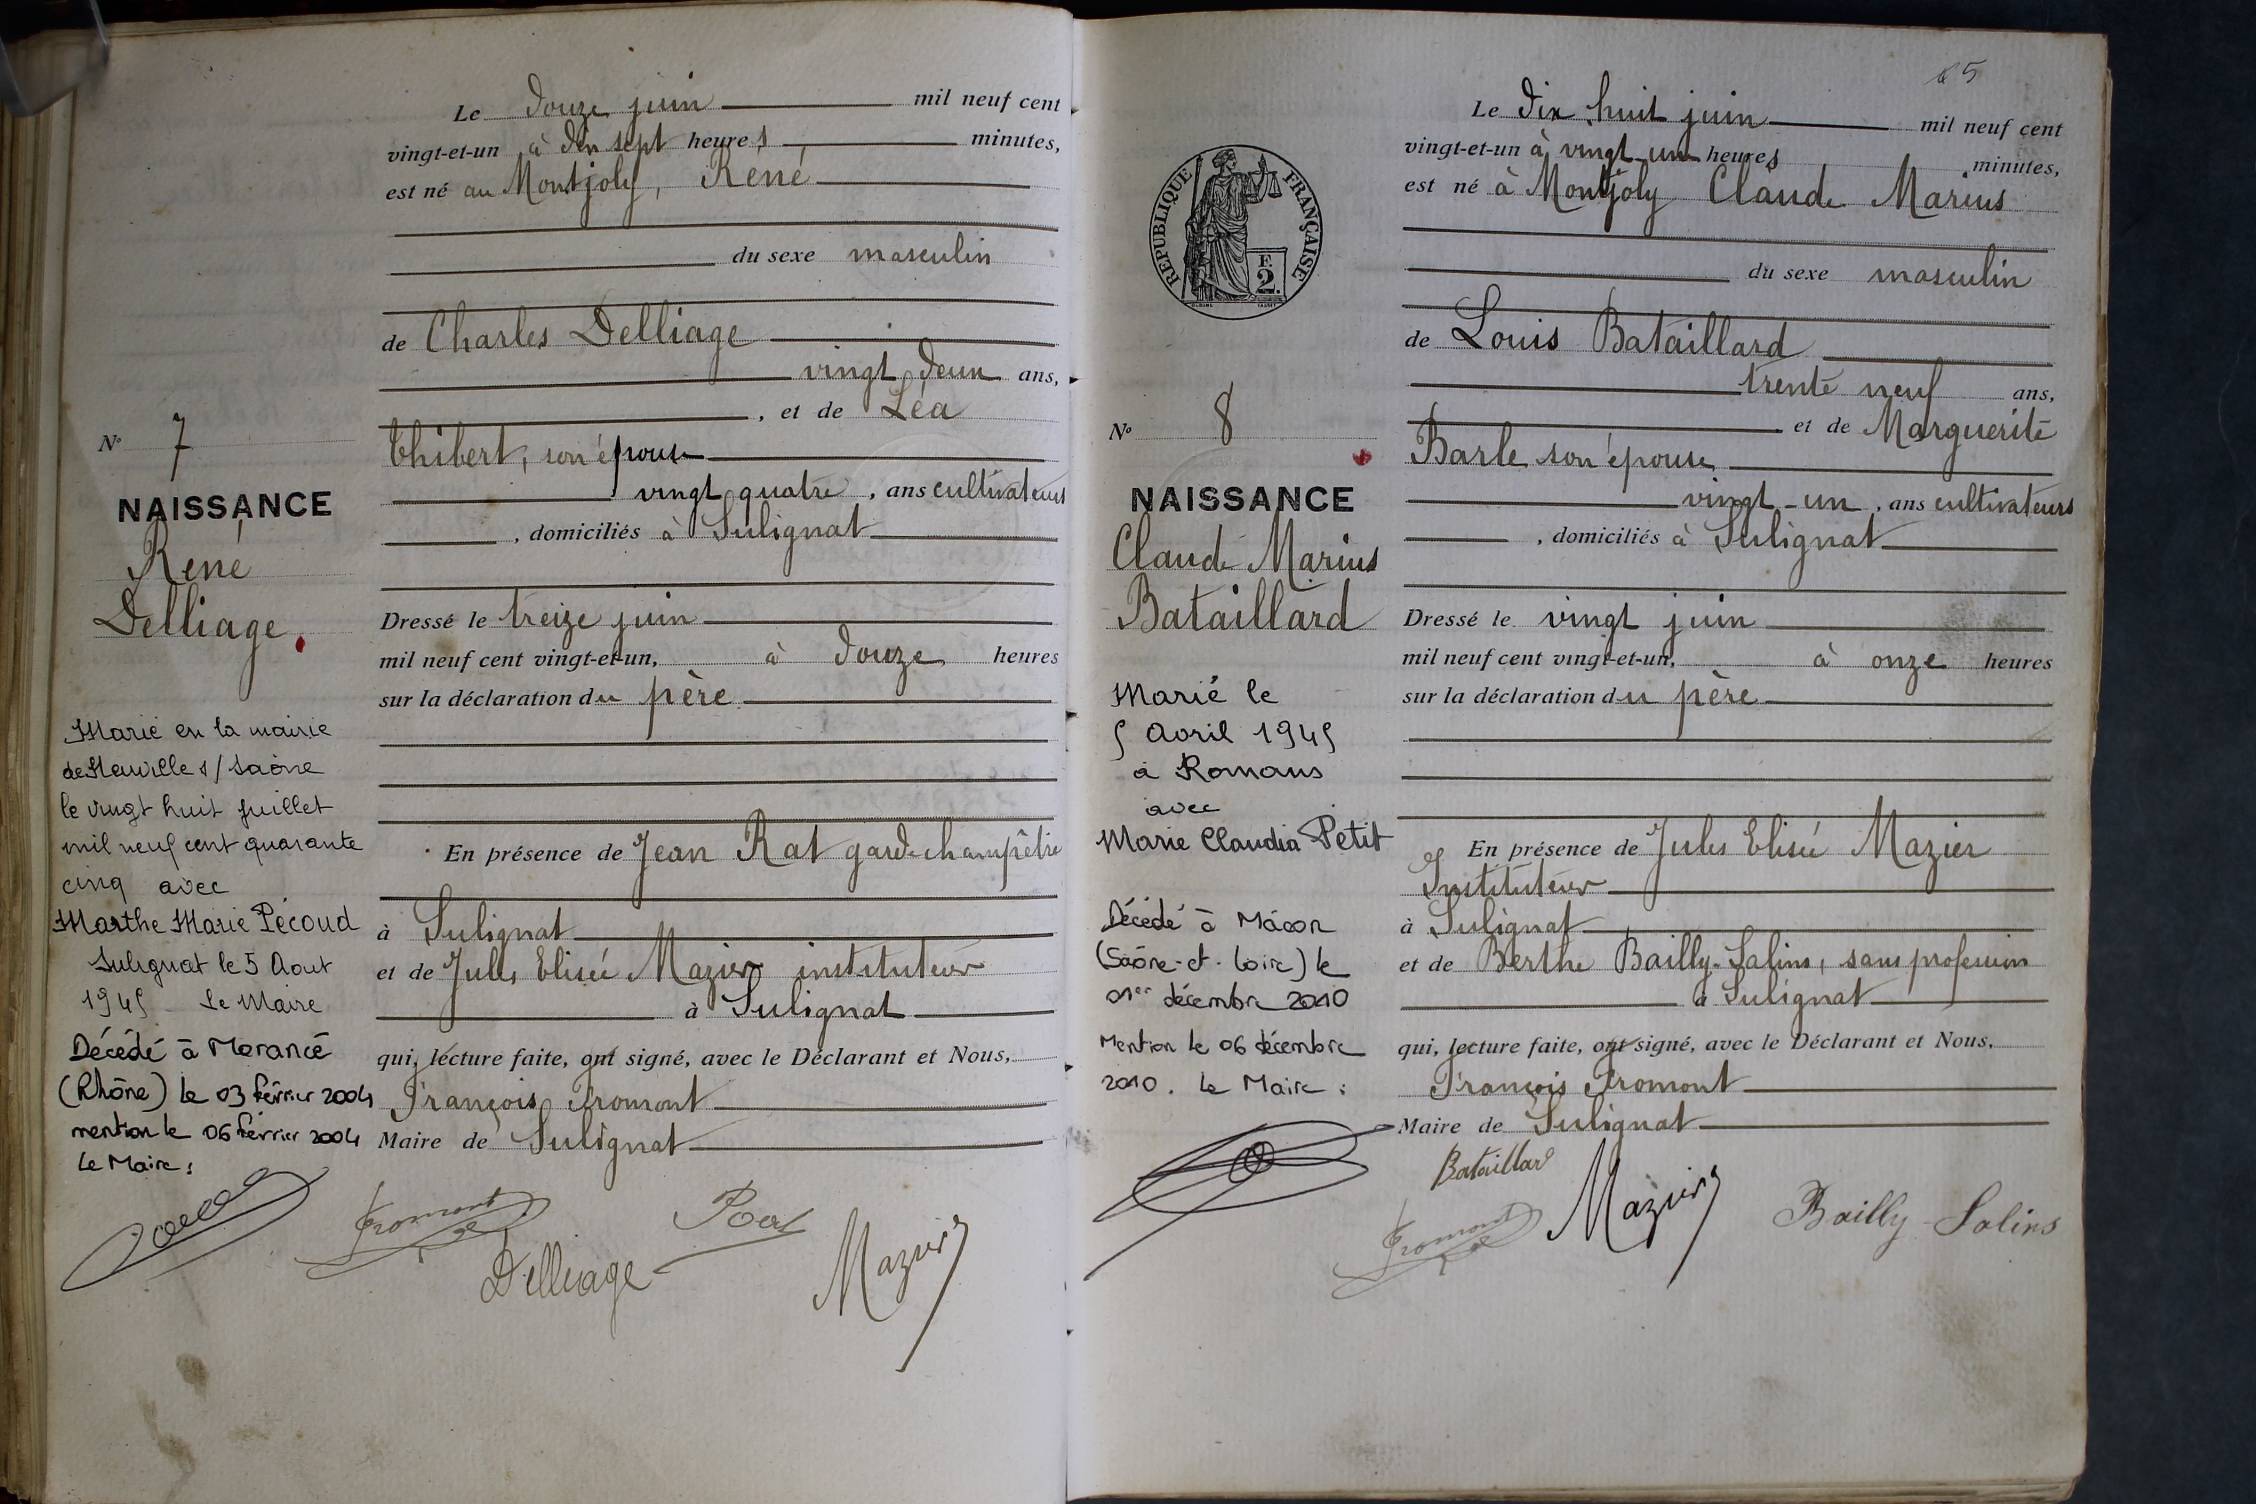 Le douze juin mil neuf cent
vingt-et-un à dix sept heures minutes,
est né au Montjoly, René
du sexe masculin
de Charles Delliage
vingt deux ans,
, et de Léa
Thibert, son épouse
vingt quatre, ans cultivateurs
, domiciliés à Sulignat
Dressé le treize juin
mil neuf cent vingt-et-un, à douze heures
sur la déclaration du père
En présence de Jean Rat garde champêtre
à Sulignat
et de Jules Elisée Mazier instituteur
à Sulignat
qui, lecture faite, ont signé, avec le Déclarant et Nous,
François Fromont
Maire de Sulignat
Fromont
Delliage
Rat
Mazier
No 7
NAISSANCE
René
Delliage
Marié en la mairie
de Neuville s/ Saône
le vingt huit juillet
mil neuf cent quarante
cinq avec
Marthe Marie Pécoud
Sulignat le 5 Aout
1945 Le Maire
Décédé à Morancé
(Rhône) le 03 février 2004
mention le 06 février 2004
Le Maire :
65
Le dix huit juin mil neuf cent
vingt-et-un à vingt un heures minutes,
est né à Montjoly Claude Marius
du sexe masculin
de Louis Bataillard
trente neuf ans,
et de Marguerite
Barle son épouse
vingt-un, ans cultivateurs
, domiciliés à Sulignat
Dressé le vingt juin
mil neuf cent vingt-et-un, à onze heures
sur la déclaration du père
En présence de Jules Elisée Mazier
Instituteur
à Sulignat
et de Berthe Bailly-Salins, sans profession
à Sulignat
qui, lecture faite, ont signé, avec le Déclarant et Nous,
François Fromont
Maire de Sulignat
Bataillard
Fromont
Mazier
Bailly-Salins
RÉPUBLIQUE FRANÇAISE
F.
2.
No 8
NAISSANCE
Claude Marius
Bataillard
Marié le
5 Avril 1945
à Romans
avec
Marie Claudia Petit
Décédé à Mâcon
(Saône-et-Loire) le
01er décembre 2010
Mention le 06 décembre
2010. Le Maire :